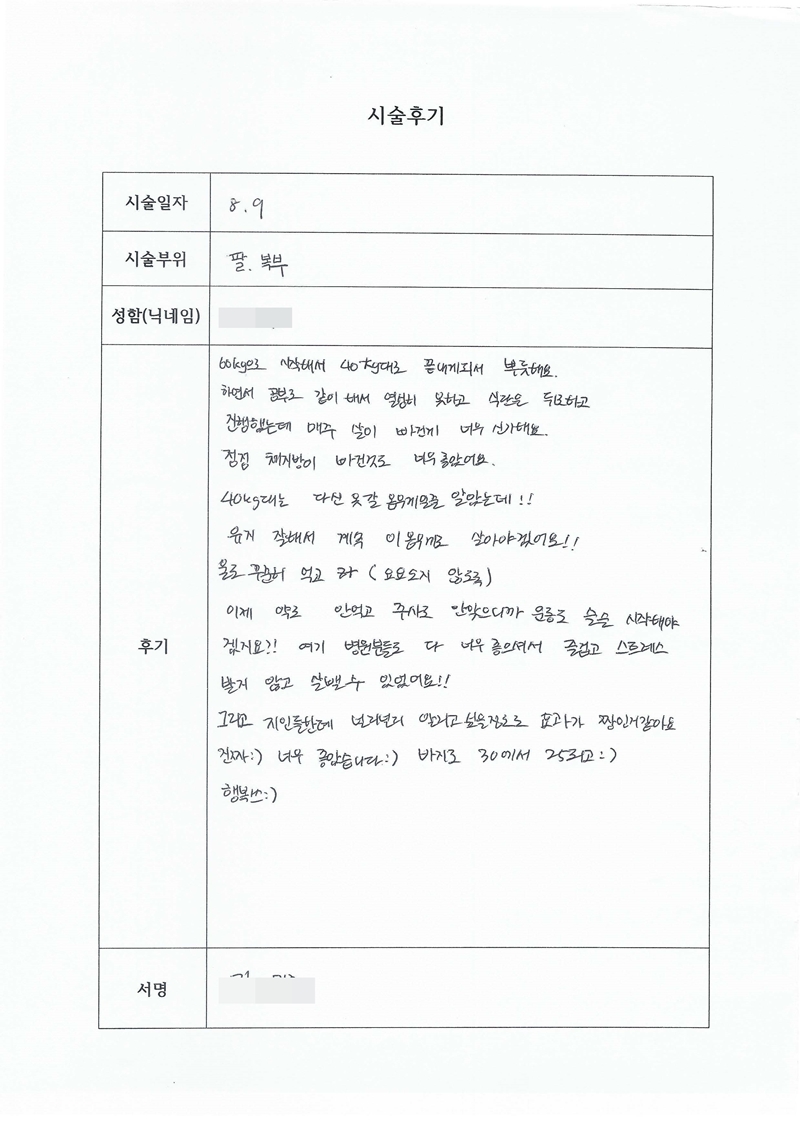 시술후기
시술일자 8.9
시술부위 팔. 복부
성함(닉네임)
후기
60kg으로 시작해서 40kg대로 끝내게되서 뿌듯해요.
하면서 공부로 같이 해서 열심히 못하고 식단은 위주하고
진행했는데 매주 살이 빠진게 너무 신기해요.
점점 체지방이 빠진것도 너무좋았어요.
40kg대는 다신 못갈 몸무게인줄 알았는데!!
유지 잘해서 계속 이몸무게로 살아야겠어요!!
물도 꾸준히 먹고 라 (요요오지 않도록)
이제 약도 안먹고 주사도 안맞으니까 운동도 슬슬 시작해야
겠지요?! 여기 병원분들도 다 너무좋으셔서 즐겁고 스트레스
받지 않고 살뺄수 있었어요!!
그리고 지인들한테 널리널리 알리고싶을정도로 효과가 짱인거같아요
진짜:) 너무 좋았습니다:) 바지도 30에서 25되고:)
행복쓰:)
서명